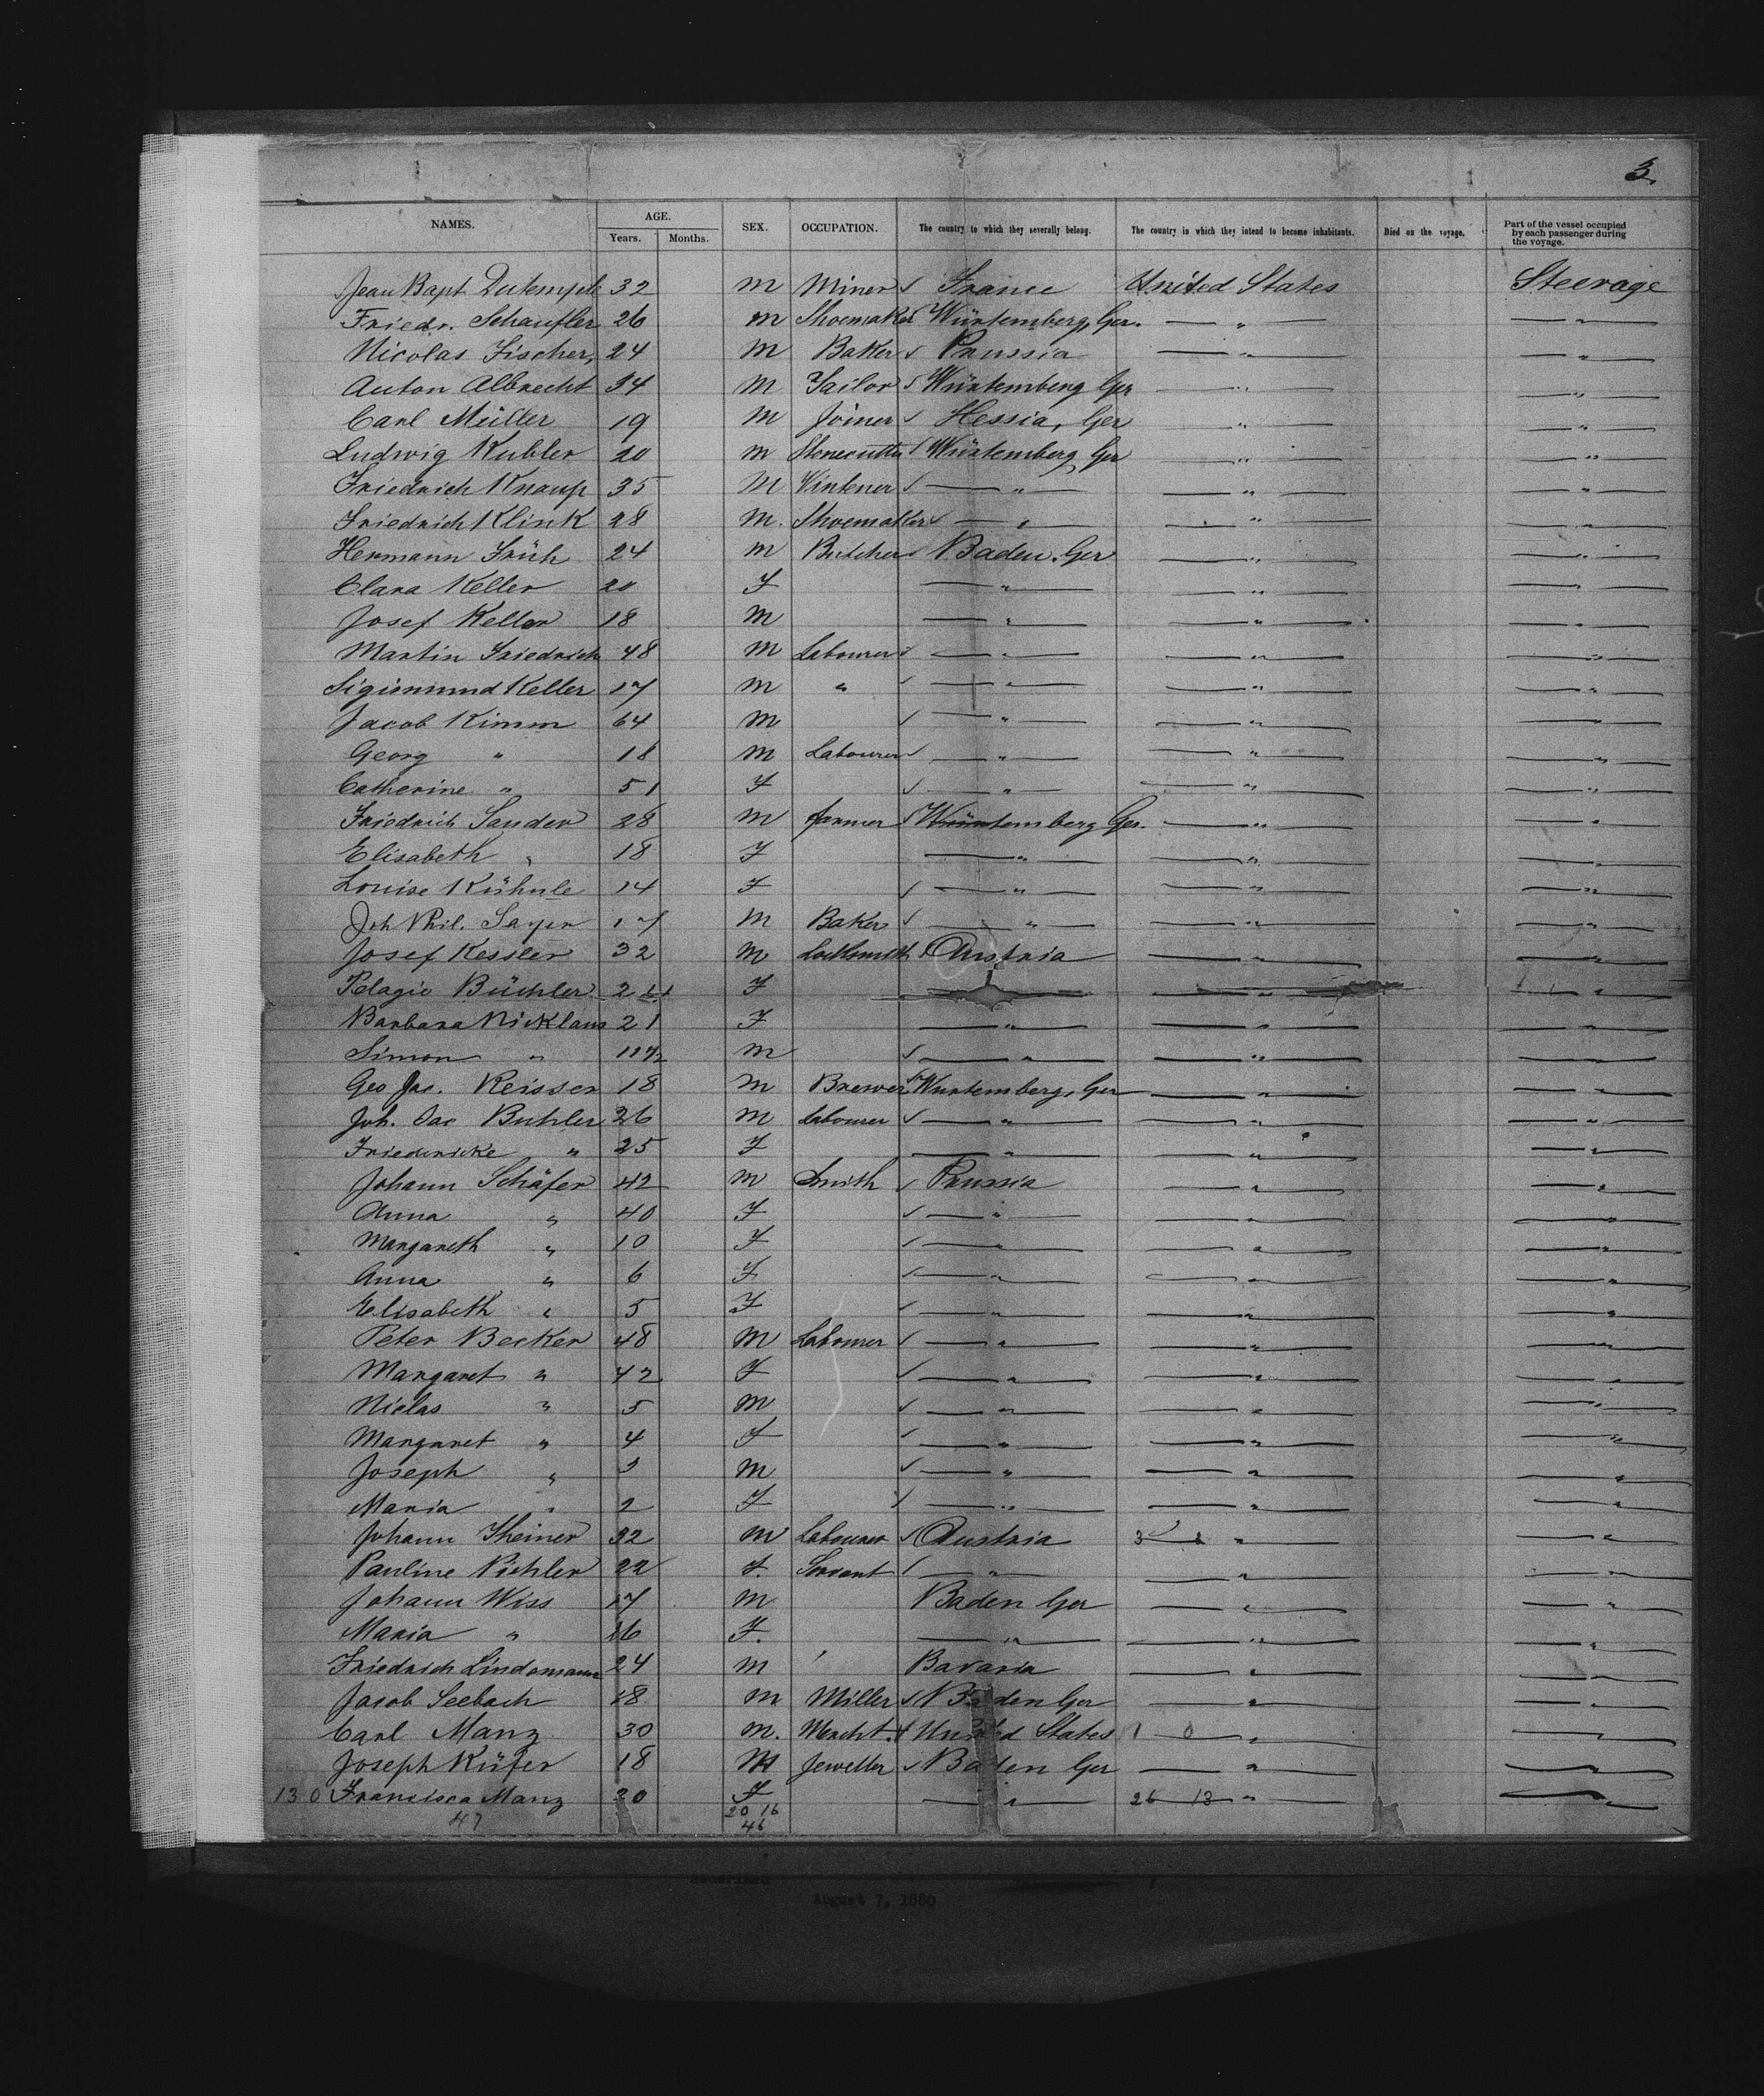 3.
NAMES. AGE. Years. Months. SEX. OCCUPATION. The country to which they severally belong. The country in which they intend to become inhabitants. Died on the voyage. Part of the vessel occupied by each passenger during the voyage.
Jean Bapt Dutempel 32 M Miner France United States Steerage
Friedr. Schaufler 26 M Shoemaker Würtemberg, Ger. " "
Nicolas Fischer, 24 M Baker Prussia " "
Anton Albrecht 34 M Tailor Würtemberg Ger " "
Carl Müller 19 M Joiner Hessia, Ger " "
Ludwig Kubler 20 M Stonecutter Würtemberg Ger " "
Friedrich Knaup 35 M Vintener " " "
Friedrich Klink 28 M. Shoemaker " " "
Hermann Früh 24 M Butcher Baden. Ger " "
Clara Keller 20 F " " "
Josef Keller 18 M " " "
Martin Friedrich 48 M Labourer " " "
Sigismund Keller 17 M " " " "
Jacob Kimm 64 M " " "
Georg " 18 M Labourer " " "
Catherine " 51 F " " "
Friedrich Sander 28 M farmer Würtemberg Ger. " "
Elisabeth " 18 F " " "
Louise Kühnle 14 F " " "
Joh Phil. Sayer 17 M Baker " " "
Josef Kessler 32 M Locksmith Austria " "
Pelagie Büchler 24 F " "
Barbara Nicklaus 21 F " " "
Simon " M " " "
Geo Jac. Reisser 18 M Brewer Wurtemberg, Ger " "
Joh. Jac Buhler 26 M Labourer " " "
Friedericke " 25 F " " "
Johann Schäfer 42 M Smith Prussia " "
Anna " 40 F " " "
Margareth " 10 F " " "
Anna " 6 F " " "
Elisabeth " 5 F " " "
Peter Becker 48 M Labourer " " "
Margaret " 42 F " " "
Niclas " 5 M " " "
Margaret " 4 F " " "
Joseph " 3 M " " "
Maria " 2 F " " "
Johann Theiner 32 M Labourer Austria 3 1 " "
Pauline Pichler 22 F. Servant " " "
Johann Wiss 17 M Baden Ger " "
Maria " 16 F. " " "
Friedrich Lindemann 24 M Bavaria " "
Jacob Seebach 18 M Miller Baden Ger " "
Carl Manz 30 M. Mercht. United States 1 0 " "
Joseph Küfer 18 M Jeweller Baden Ger " "
130 Francisca Manz 20 F " 26 13 " "
47 20 16
46
August 7, 1880